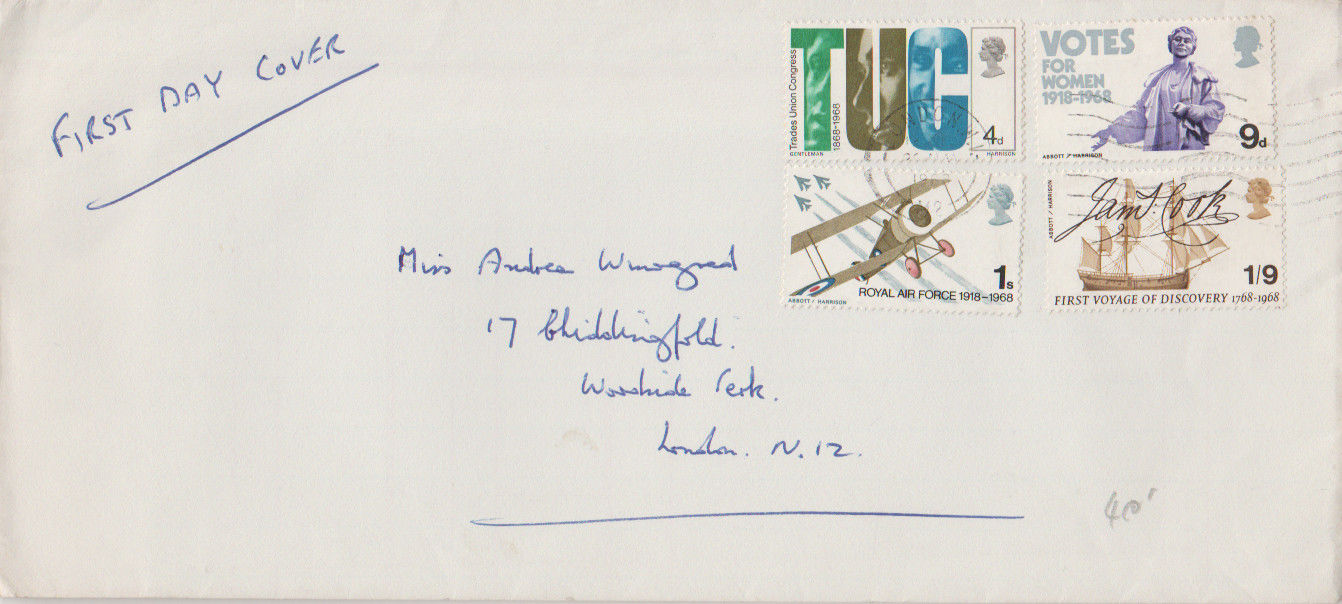 FIRST DAY COVER
Trades Union Congress
TUC
1868-1968
4d
GENTLEMAN
HARRISON
VOTES
FOR
WOMEN
1918-1968
9d
ABBOTT / HARRISON
LONDON
1968
1s
ROYAL AIR FORCE 1918-1968
ABBOTT / HARRISON
ABBOTT / HARRISON
Jams. Cook
1/9
FIRST VOYAGE OF DISCOVERY 1768-1968
Miss Andrea Winograd
17 Chiddingfold.
Woodside Park.
London. N. 12.